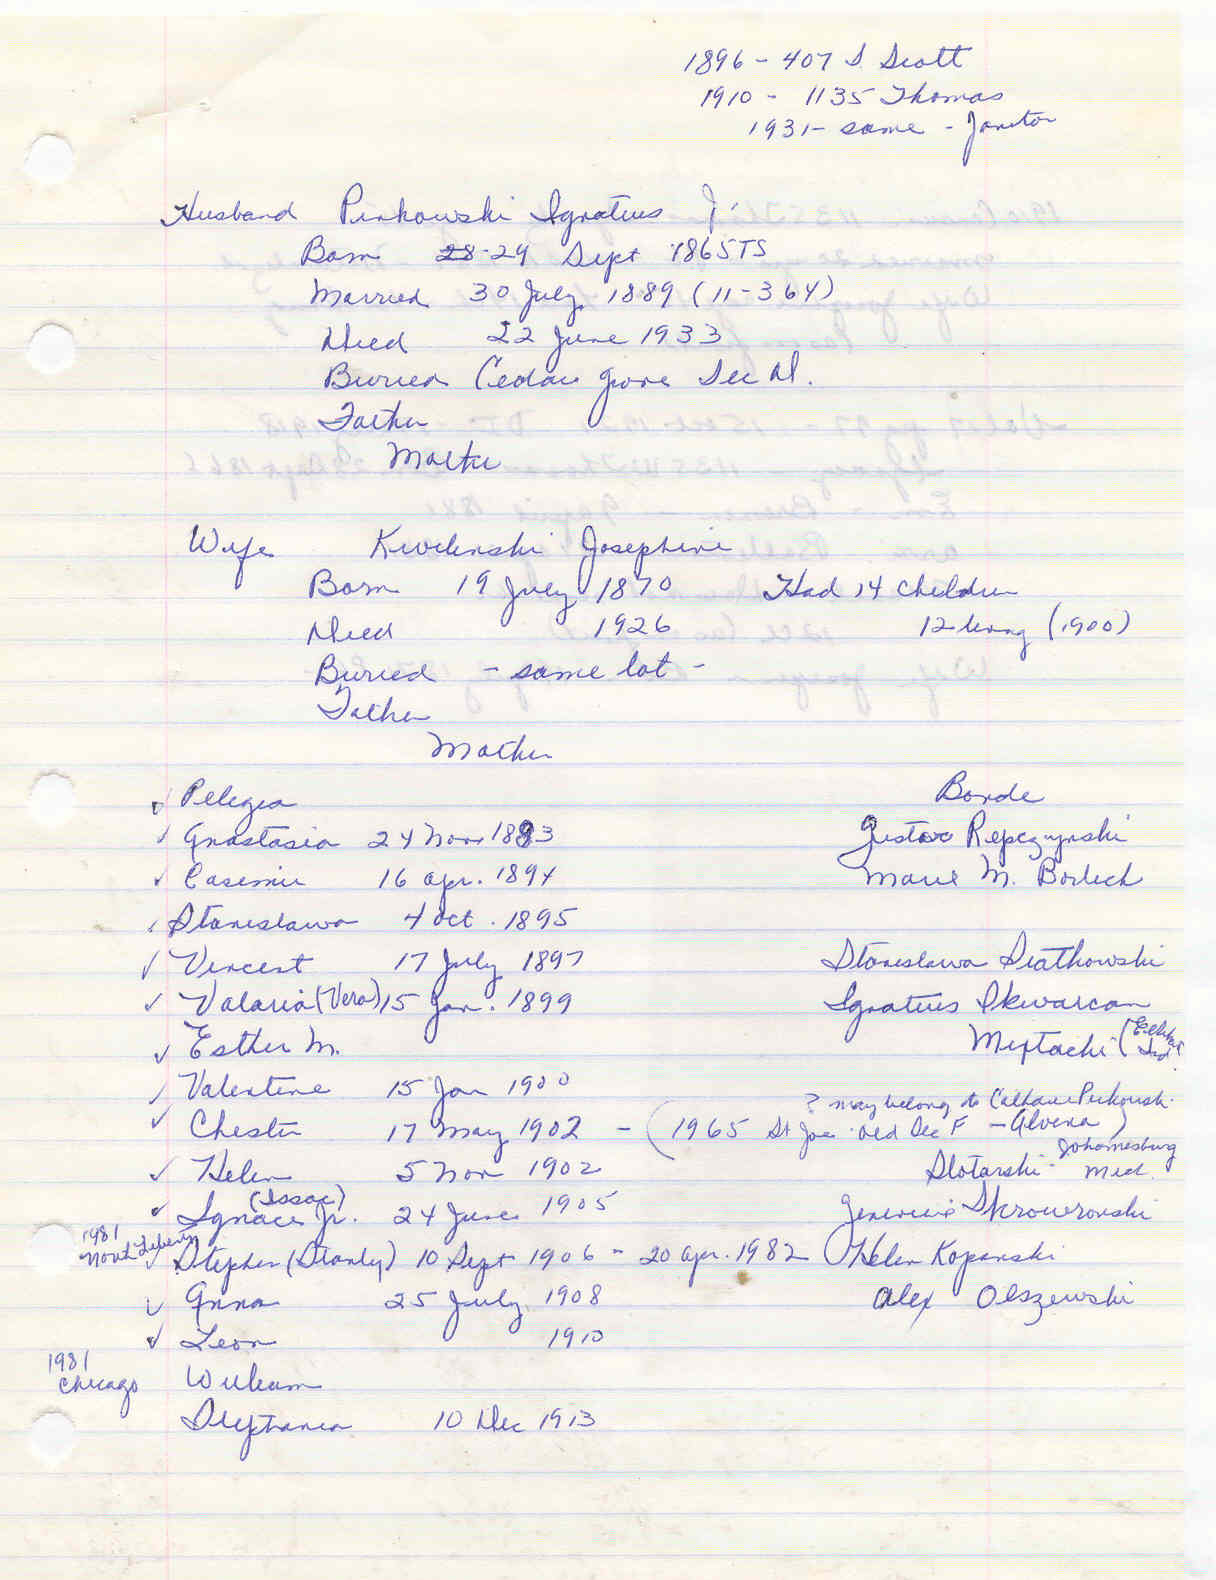 1896 - 407 S Scott
1910 - 1135 Thomas
1931 - same - Janitor
Husband Pinkowski Ignatius J.
Born 28-29 Sept 1865 TS
Married 30 July 1889 (11-364)
Died 22 June 1933
Buried Cedar Grove Sec N.
Father
Mother
Wife Kwilinski Josephine
Born 19 July 1870 Had 14 children
Died 1926 12 living (1900)
Buried - same lot -
Father
Mother
Pelegia Bonde
Anastasia 24 Nov 1893 Gustav Repczynski
Casemir 16 Apr. 1894 Marie M.
Stanislawa 4 Oct. 1895
Vincent 17 July 1897 Stanislawa Siatkowski
Valaria (Vera) 15 Jan. 1899 Ignatius Skwarcan
Esther M. (Elkhart Ind.
Valentine 15 Jan 1900
? may belong to
Chester 17 May 1902 - (1965 St Joe Old Sec F - Alvena)
Helen 5 Nov 1902 Slotarski Johannesburg Mich.
(Issac)
Ignace Jr. 24 June 1905 Skrowronski
1981 North Liberty
Stephen (Stanly) 10 Sept 1906 - 20 Apr. 1982 Helen Kopanski
Anna 25 July 1908 Alex Olszewski
Leon 1910
1981 Chicago William
Stephania 10 Dec 1913